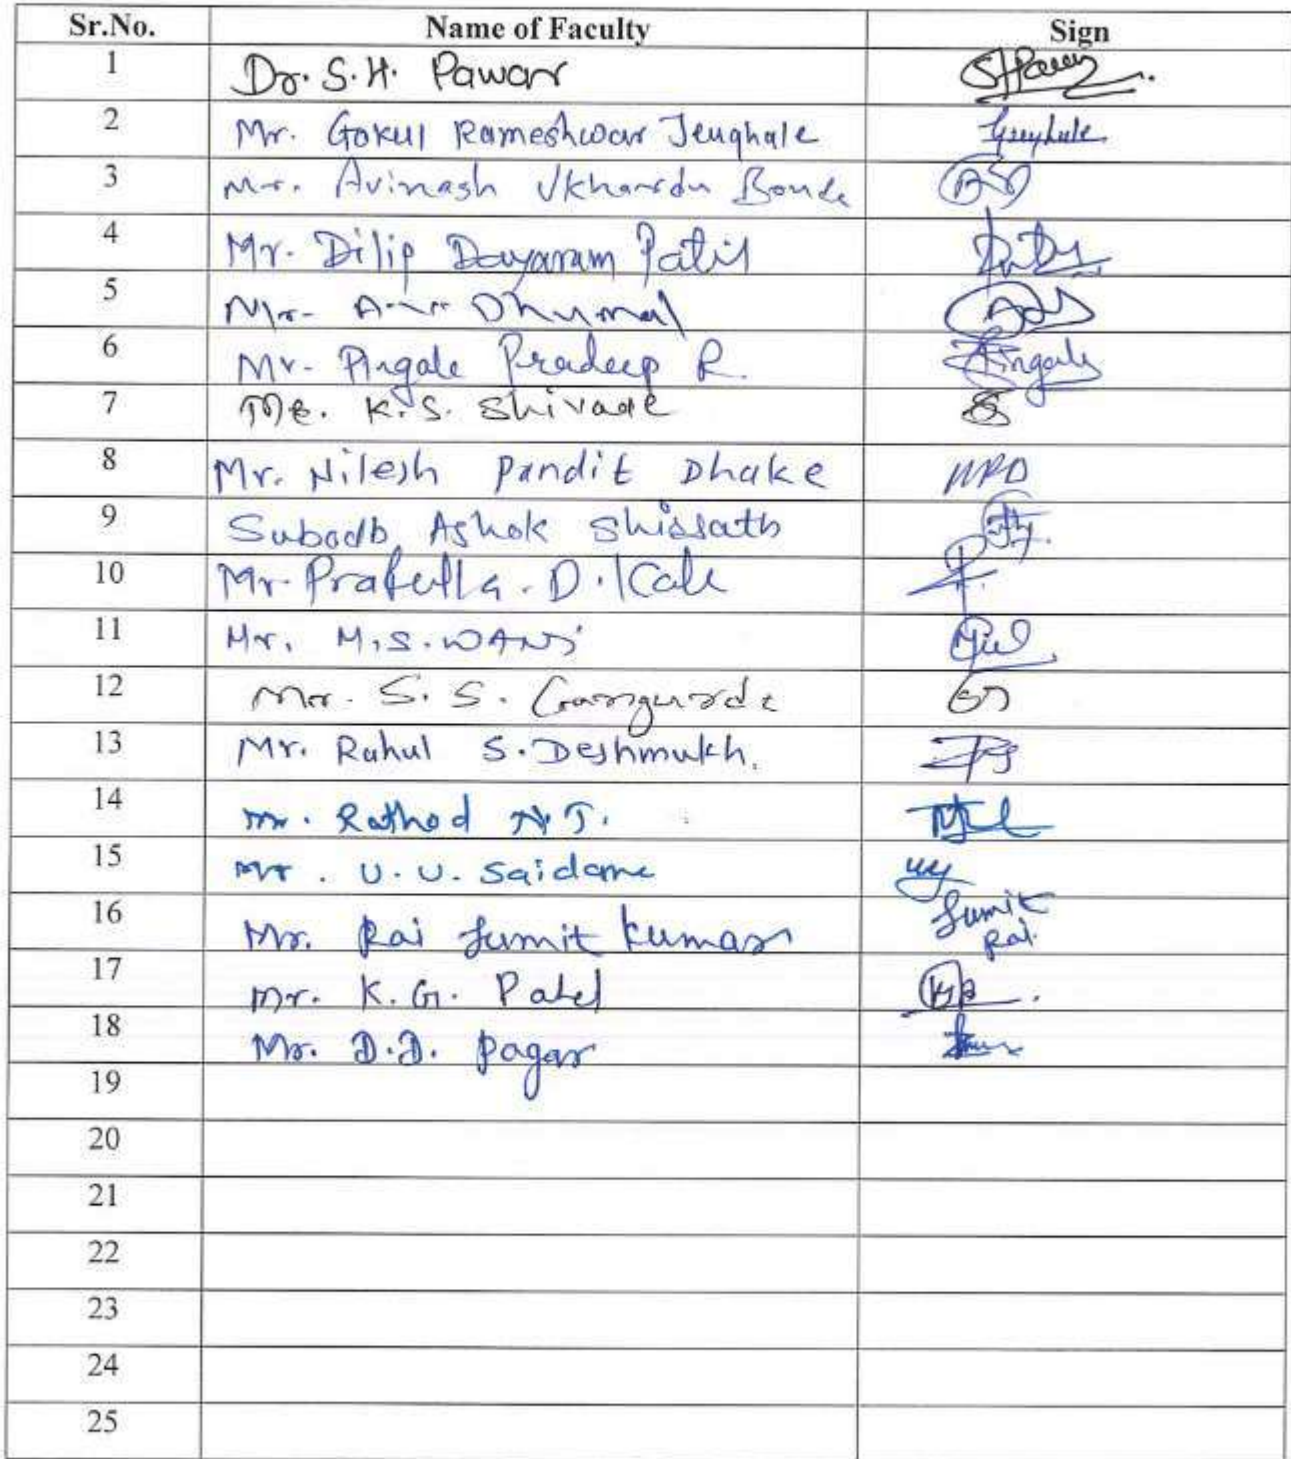 Sr.No. Name of Faculty Sign
1 Dr. S.H. Pawar SHPawar
2 Mr. Gokul Rameshwar Jeughale
3 Mr. Avinash Bonde
4 Mr. Dilip Dayaram Patil
5 Mr. Dhumal
6 Mr. Pingale Pradeep R. Pingale
7 K.S. Shivade
8 Mr. Nilesh Pandit Dhake NPD
9 Subodh Ashok Shissath
10 Mr. Prafulla. D. Kale
11 Mr. M.S. WANI
12 Mr. S. S. Gangurde
13 Mr. Rahul S. Deshmukh.
14 Mr. Rathod N.T.
15 Mr. U.U. Saidane
16 Mr. Rai Sumit Kumar Sumit
Rai
17 Mr. K.G. Patel
18 Mr. D.D. Pagar
19
20
21
22
23
24
25